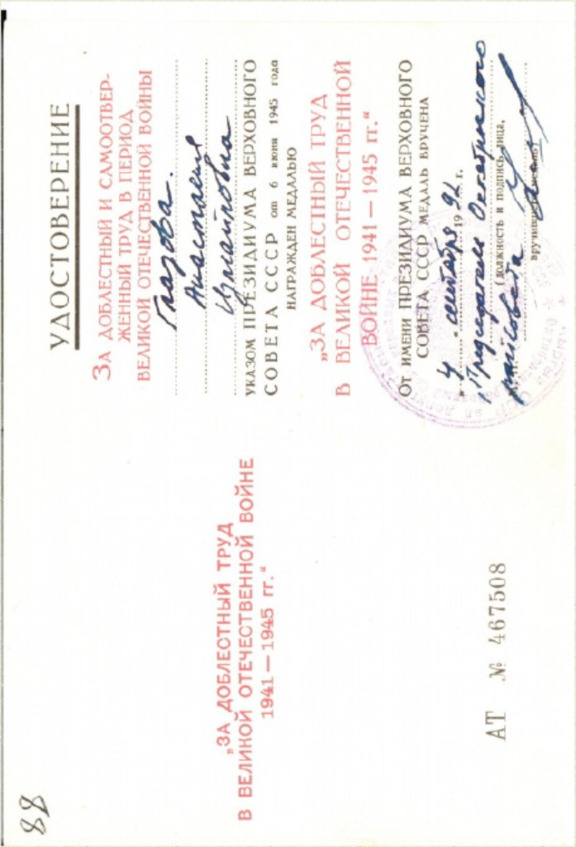 88
„ЗА ДОБЛЕСТНЫЙ ТРУД
В ВЕЛИКОЙ ОТЕЧЕСТВЕННОЙ ВОЙНЕ
1941 — 1945 гг.“
АТ № 467508
УДОСТОВЕРЕНИЕ
ЗА ДОБЛЕСТНЫЙ И САМООТВЕР-
ЖЕННЫЙ ТРУД В ПЕРИОД
ВЕЛИКОЙ ОТЕЧЕСТВЕННОЙ ВОЙНЫ
Глазова.
Анастасия
Измайловна
УКАЗОМ ПРЕЗИДИУМА ВЕРХОВНОГО
СОВЕТА СССР от 6 июня 1945 года
НАГРАЖДЕН МЕДАЛЬЮ
„ЗА ДОБЛЕСТНЫЙ ТРУД
В ВЕЛИКОЙ ОТЕЧЕСТВЕННОЙ
ВОЙНЕ 1941 — 1945 гг.“
ОТ ИМЕНИ ПРЕЗИДИУМА ВЕРХОВНОГО
СОВЕТА СССР МЕДАЛЬ ВРУЧЕНА
„4“ сентября 1992 г.
Председатель Октябрьского
(должность и подпись лица,
райсовета
вручившего медаль)